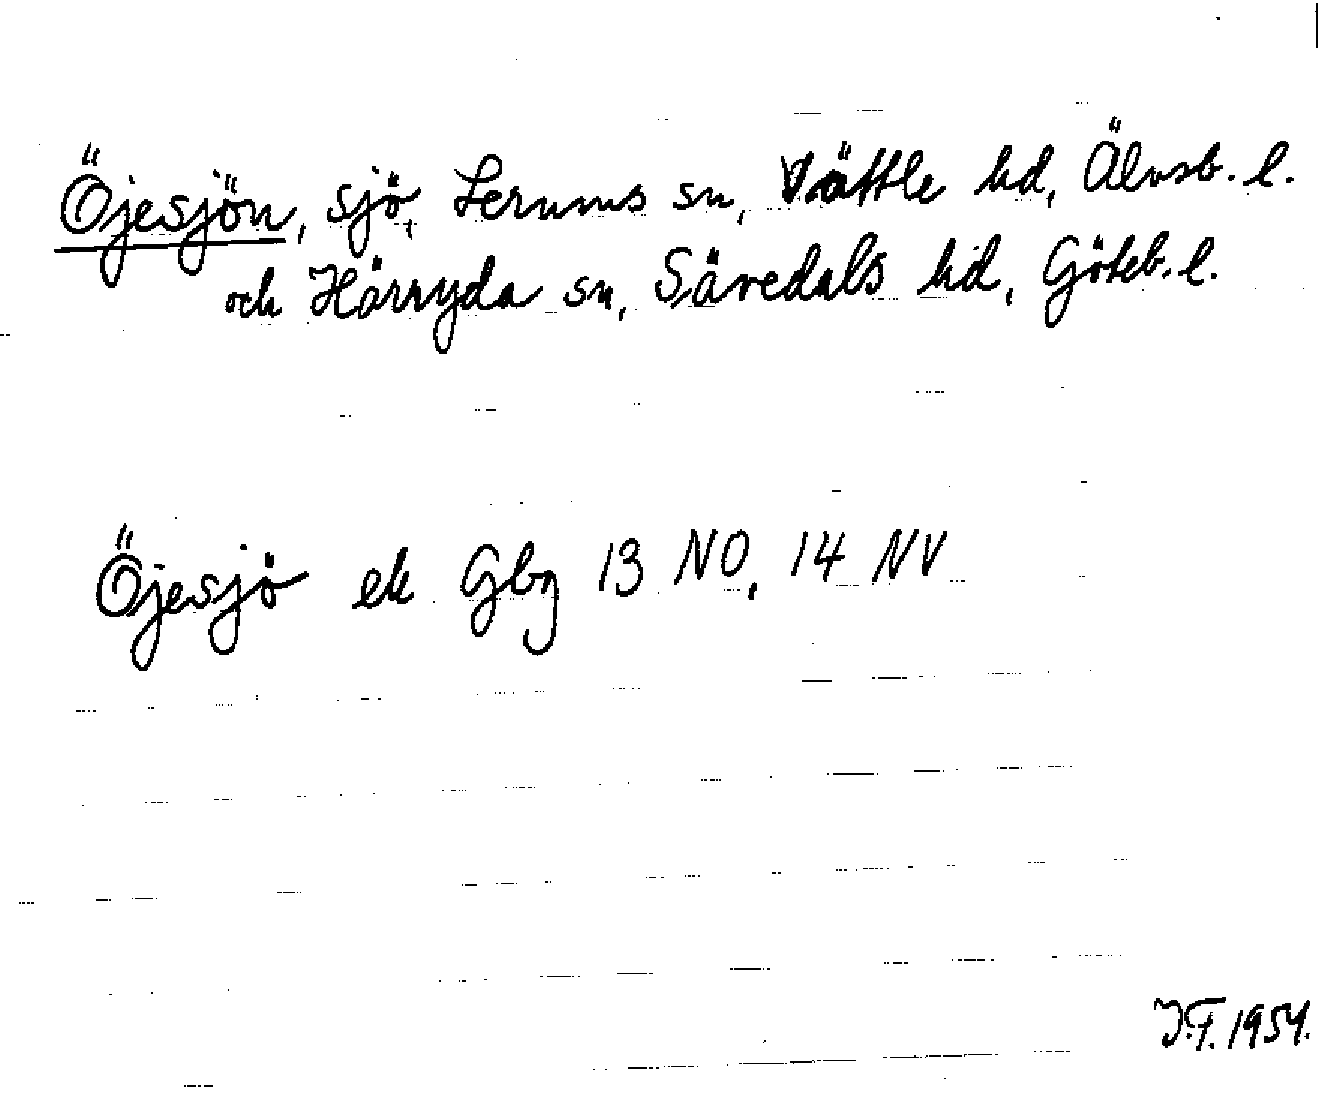 Öjesjön, sjö, Lerums sn, Vättle hd, Älvsb. l.
och Härryda sn, Sävedals hd, Göteb. l.
Öjesjö ek Gbg 13 NO, 14 NV
J.F. 1954.